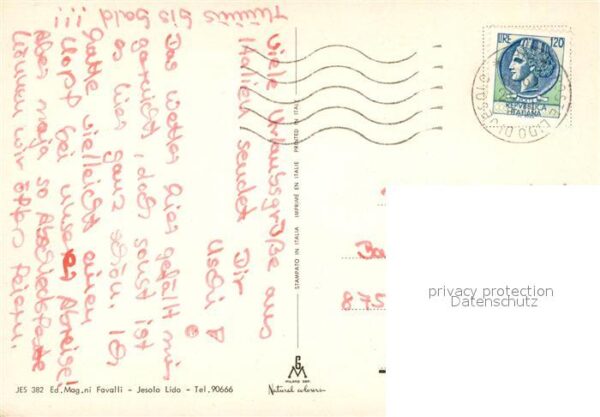 Viele Urlaubsgrüße aus
Italien sendet Dir
Uschi
Das Wetter hier gefällt mir
gar nicht, doch sonst ist
es hier ganz schön. Ich
hatte vielleicht einen
bei unserer Abreise!
Aber naja so
können wir öfter feiern.
Tschüüs bis bald
!!!
LIRE 120
REPVBBLICA
ITALIANA
LIDO DI JESOLO
STAMPATO IN ITALIA IMPRIMÉ EN ITALIE PRINTED IN ITALY
875
privacy protection
Datenschutz
GM
MILANO
Natural colorera
JES 382 Ed. Mag.ni Favalli - Jesolo Lido - Tel. 90666